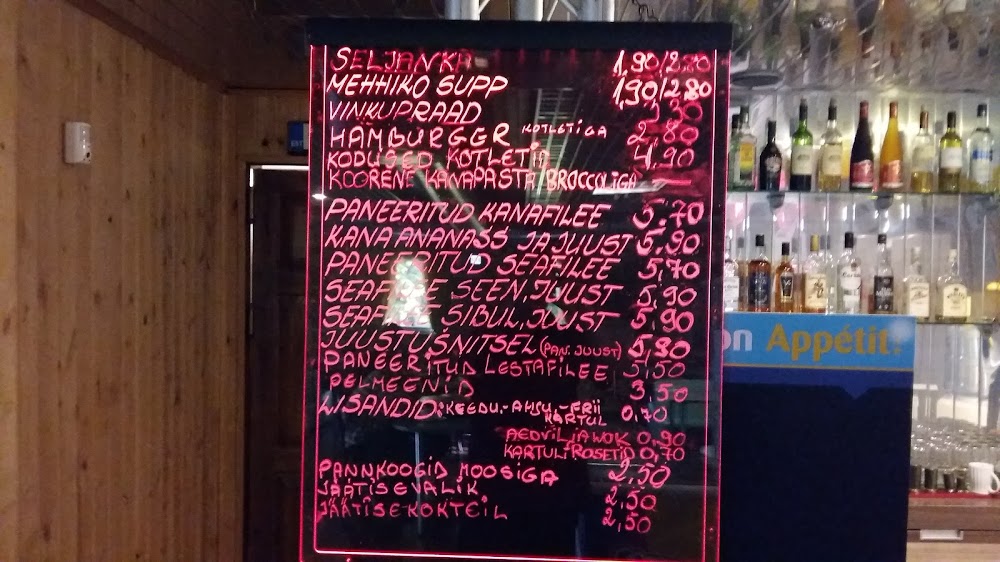 SELJANKA 1,90/2,80
MEHHIKO SUPP 1,90/2,80
VINKUPRAAD 3,30
HAMBURGER KOTLETIGA 2,80
KODUSED KOTLETID 4,90
KOORENE KANAPASTA BROCCOLIGA —
PANEERITUD KANAFILEE 5,70
KANA ANANASS JA JUUST 5,90
PANEERITUD SEAFILEE 5,70
SEAFILEE SEEN, JUUST 5,90
SEAFILEE SIBUL, JUUST 5,90
JUUSTUŠNITSEL (PAN. JUUST) 5,90
PANEERITUD LESTAFILEE 5,50
PELMEENID 3,50
LISANDID: KEEDU,- AHJU,- FRII 0,70
KARTUL
AEDVILJAWOK 0,90
KARTULIROSETID 0,70
PANNKOOGID MOOSIGA 2,50
JÄÄTISEVALIK 2,50
JÄÄTISEKOKTEIL 2,50
on Appétit